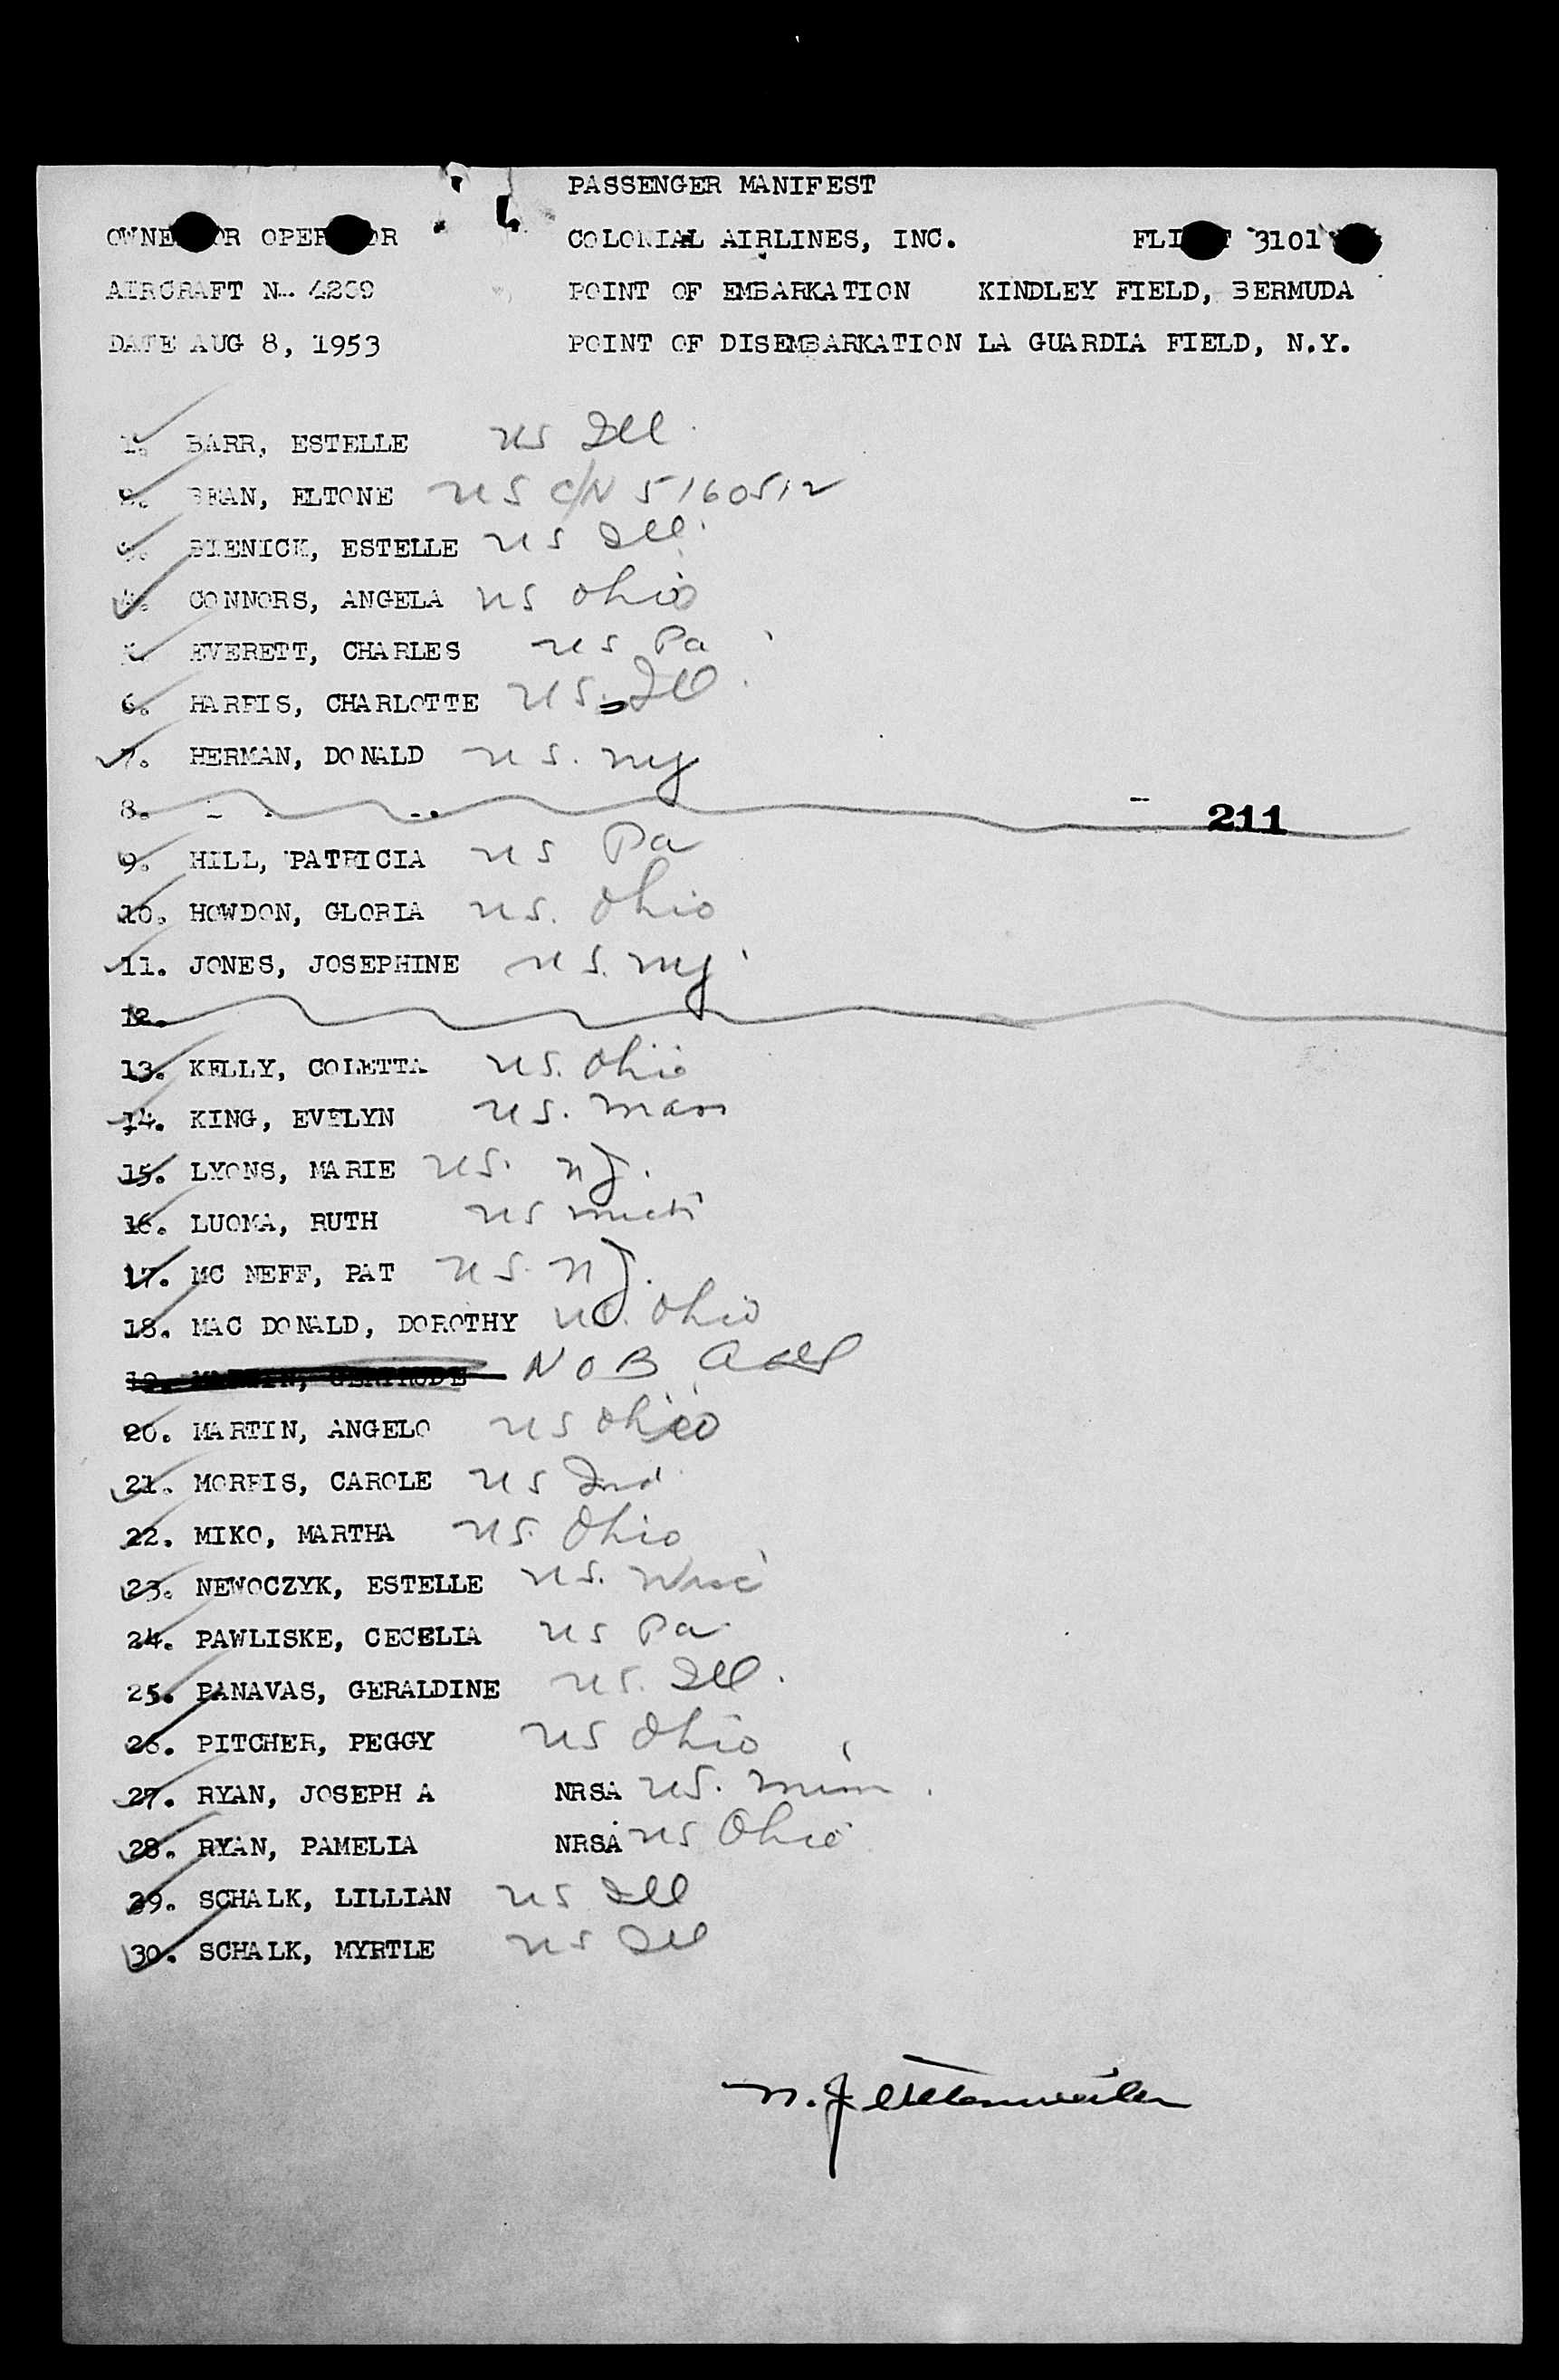 PASSENGER MANIFEST
OWNER OR OPERATOR COLONIAL AIRLINES, INC. FLIGHT 3101
AIRCRAFT POINT OF EMBARKATION KINDLEY FIELD, BERMUDA
DATE AUG 8, 1953 POINT OF DISEMBARKATION LA GUARDIA FIELD, N.Y.
1. BARR, ESTELLE US Ill
2. BEAN, ELTONE US C/N 5160512
3. BIENICK, ESTELLE US Ill
4. CONNORS, ANGELA US Ohio
5. EVERETT, CHARLES US Pa
6. HARRIS, CHARLOTTE US Ill
7. HERMAN, DONALD US. NY
8. 211
9. HILL, PATRICIA US Pa
10. HOWDON, GLORIA US. Ohio
11. JONES, JOSEPHINE US. NY
12.
13. KELLY, COLETTA US. Ohio
14. KING, EVELYN US. Mass
15. LYONS, MARIE US. NJ.
16. LUOMA, RUTH US Mich
17. MC NEFF, PAT US. NJ.
18. MAC DONALD, DOROTHY US. Ohio
19. MARTIN, GERTRUDE NOB
20. MARTIN, ANGELO US Ohio
21. MORRIS, CAROLE US Ind
22. MIKO, MARTHA US. Ohio
23. NEWOCZYK, ESTELLE US. Wisc
24. PAWLISKE, CECELIA US Pa
25. PANAVAS, GERALDINE US. Ill.
26. PITCHER, PEGGY US Ohio
27. RYAN, JOSEPH A NRSA US. Minn.
28. RYAN, PAMELIA NRSA US Ohio
29. SCHALK, LILLIAN US Ill
30. SCHALK, MYRTLE US Ill